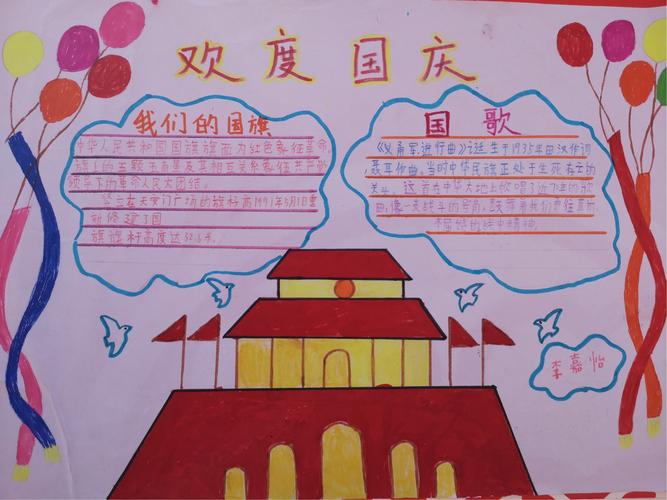 欢度国庆
我们的国旗
中华人民共和国国旗旗面为红色象征革命。
旗上的五颗五角星及其相互关系象征共产党
领导下的革命人民大团结。
竖立在天安门广场的旗杆高1991年5月1日重
新修建了国
旗旗杆高度达32.6米。
国歌
《义勇军进行曲》诞生于1935年由汉作词
聂耳作曲,当时中华民族正处于生死存亡的
关头。这首在中华大地上被唱了近7年的歌
曲,像一支战斗的号角,鼓舞着我们
不屈的战斗精神。
李嘉怡